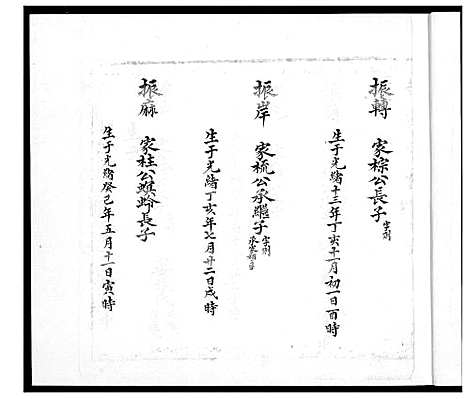 振轉 家棕公長子 字列
生于光緒十三年丁亥十一月初一日酉時
振岸 家梳公承繼子 字列
生于光緒丁亥年七月廿二日戌時
振麻 家柱公螟蛉長子
生于光緒癸巳年五月十一日寅時